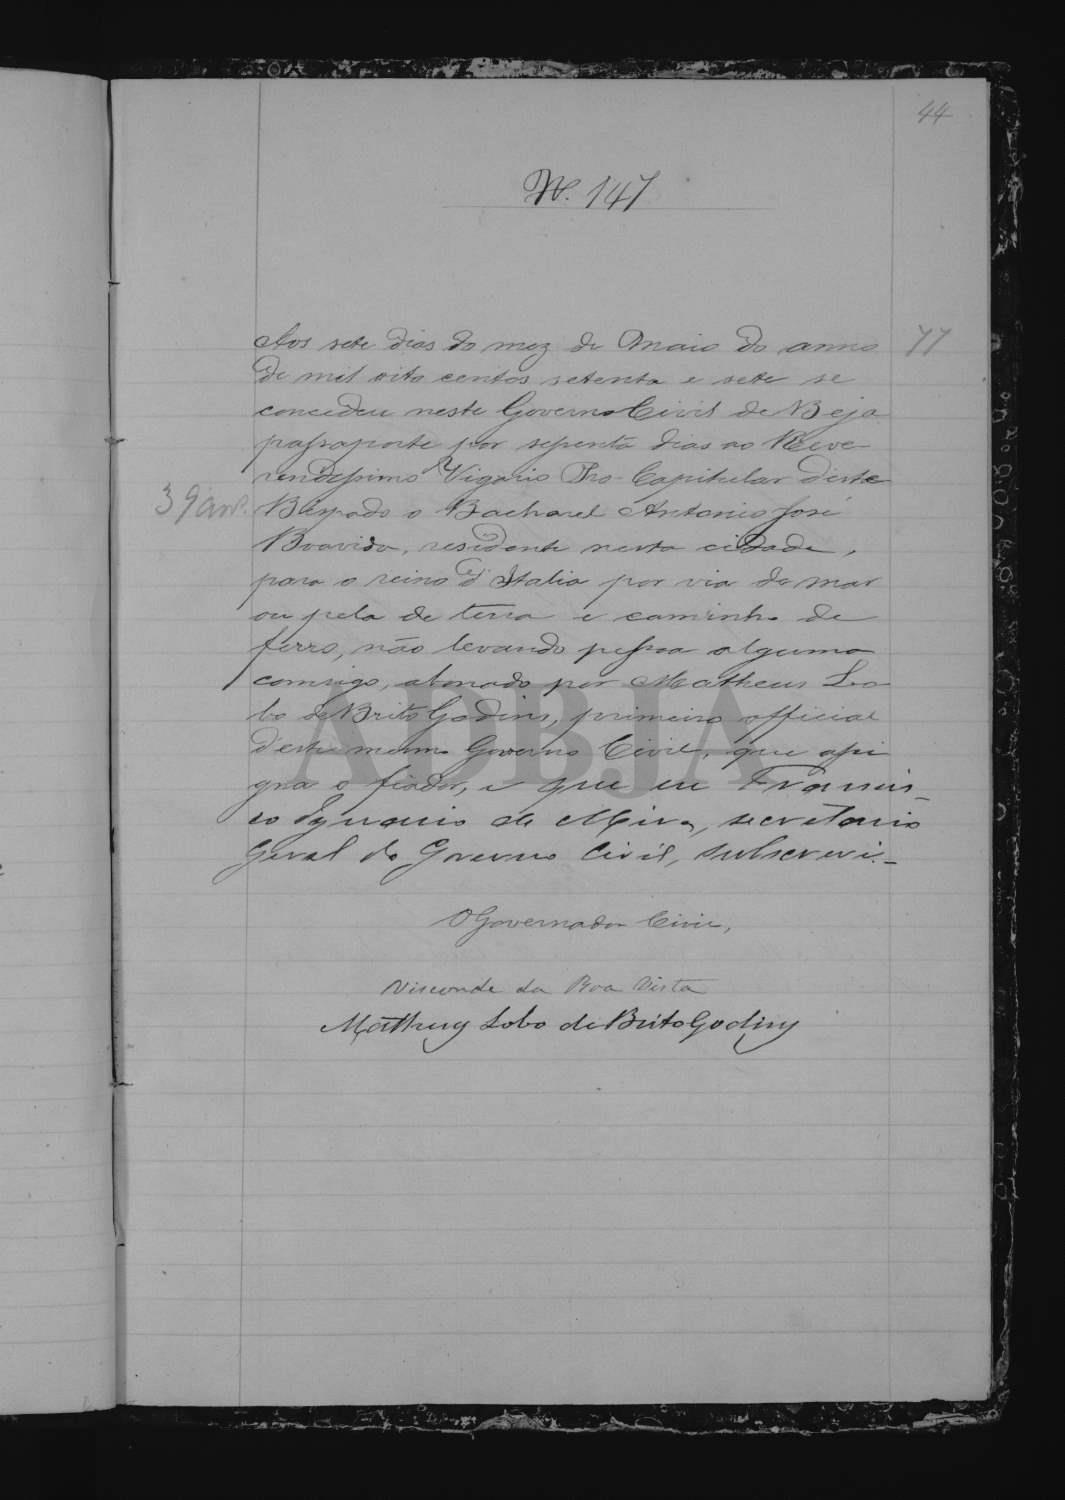 44
N. 147
Aos sete dias do mez de Maio do anno 77
de mil oito centos setenta e sete se
concedeu neste Governo Civil de Beja
passaporte por sessenta dias ao Reve-
rendissimo Vigario Pro-Capitular deste
Bispado o Bacharel Antonio José
Boavida, residente nesta cidade,
para o reino d'Italia por via do mar
ou pela de terra e caminho de
ferro, não levando pessoa alguma
comsigo, abonado por Matheus Lo
bo de Brito Godins, primeiro official
d'este mesmo Governo Civil, que assi
gna o fiador, e que eu Francis-
co Ignacio de Mira, secretario
geral do Governo Civil, subscrevi.-
O Governador Civil,
Visconde da Boa Vista
Matheus Lobo de Brito Godins
ADBJA